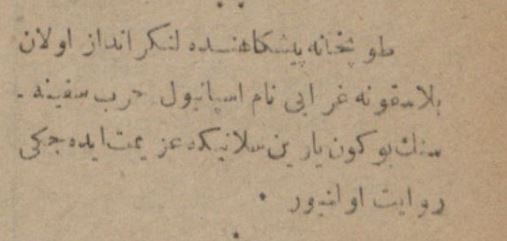 طوپخانه پیشکاهنده لنکر انداز اولان
بلاسقونه غرابی نام اسپانیول حرب سفینه -
سنك بو کون یارین سلانیکه عزیمت ایده جکی
روایت اولنیور ٠